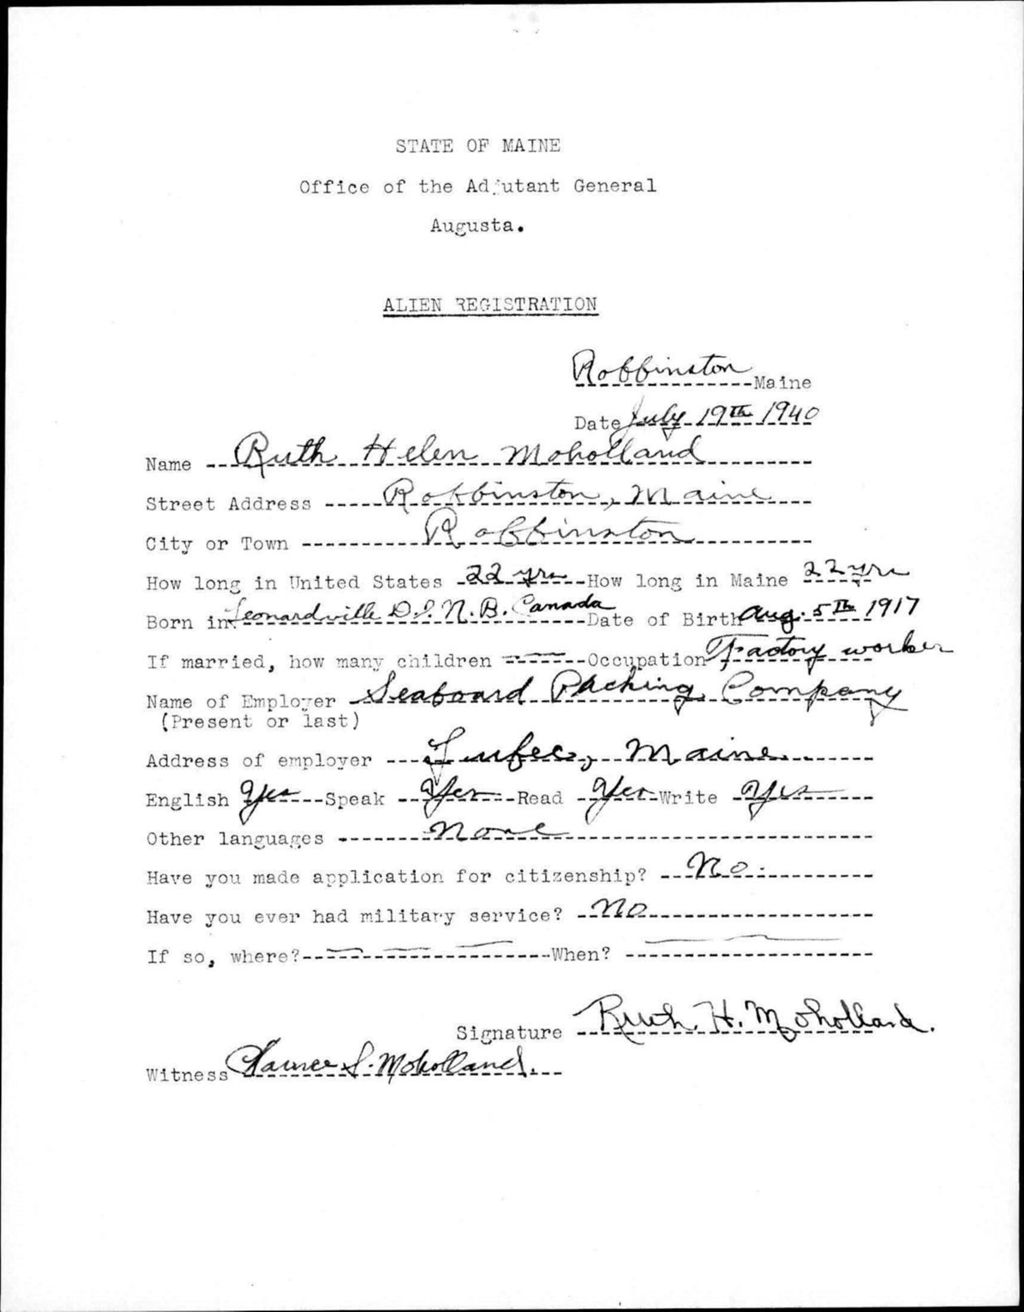 STATE OF MAINE
Office of the Adjutant General
Augusta.
ALIEN REGISTRATION
Robbinston Maine
Date July 19th 1940
Name Ruth Helen Moholland
Street Address Robbinston, Maine
City or Town Robbinston
How long in United States 22 yrs How long in Maine 22 yrs
Born in Leonardville D.I. N.B. Canada Date of Birth Aug. 5th 1917
If married, how many children ---- Occupation Factory worker
Name of Employer Seaboard Packing Company
(Present or last)
Address of employer Lubec, Maine
English Yes Speak Yes Read Yes Write Yes
Other languages None
Have you made application for citizenship? No.
Have you ever had military service? No
If so, where? When?
Signature Ruth. H. Moholland.
Witness S. Moholland.